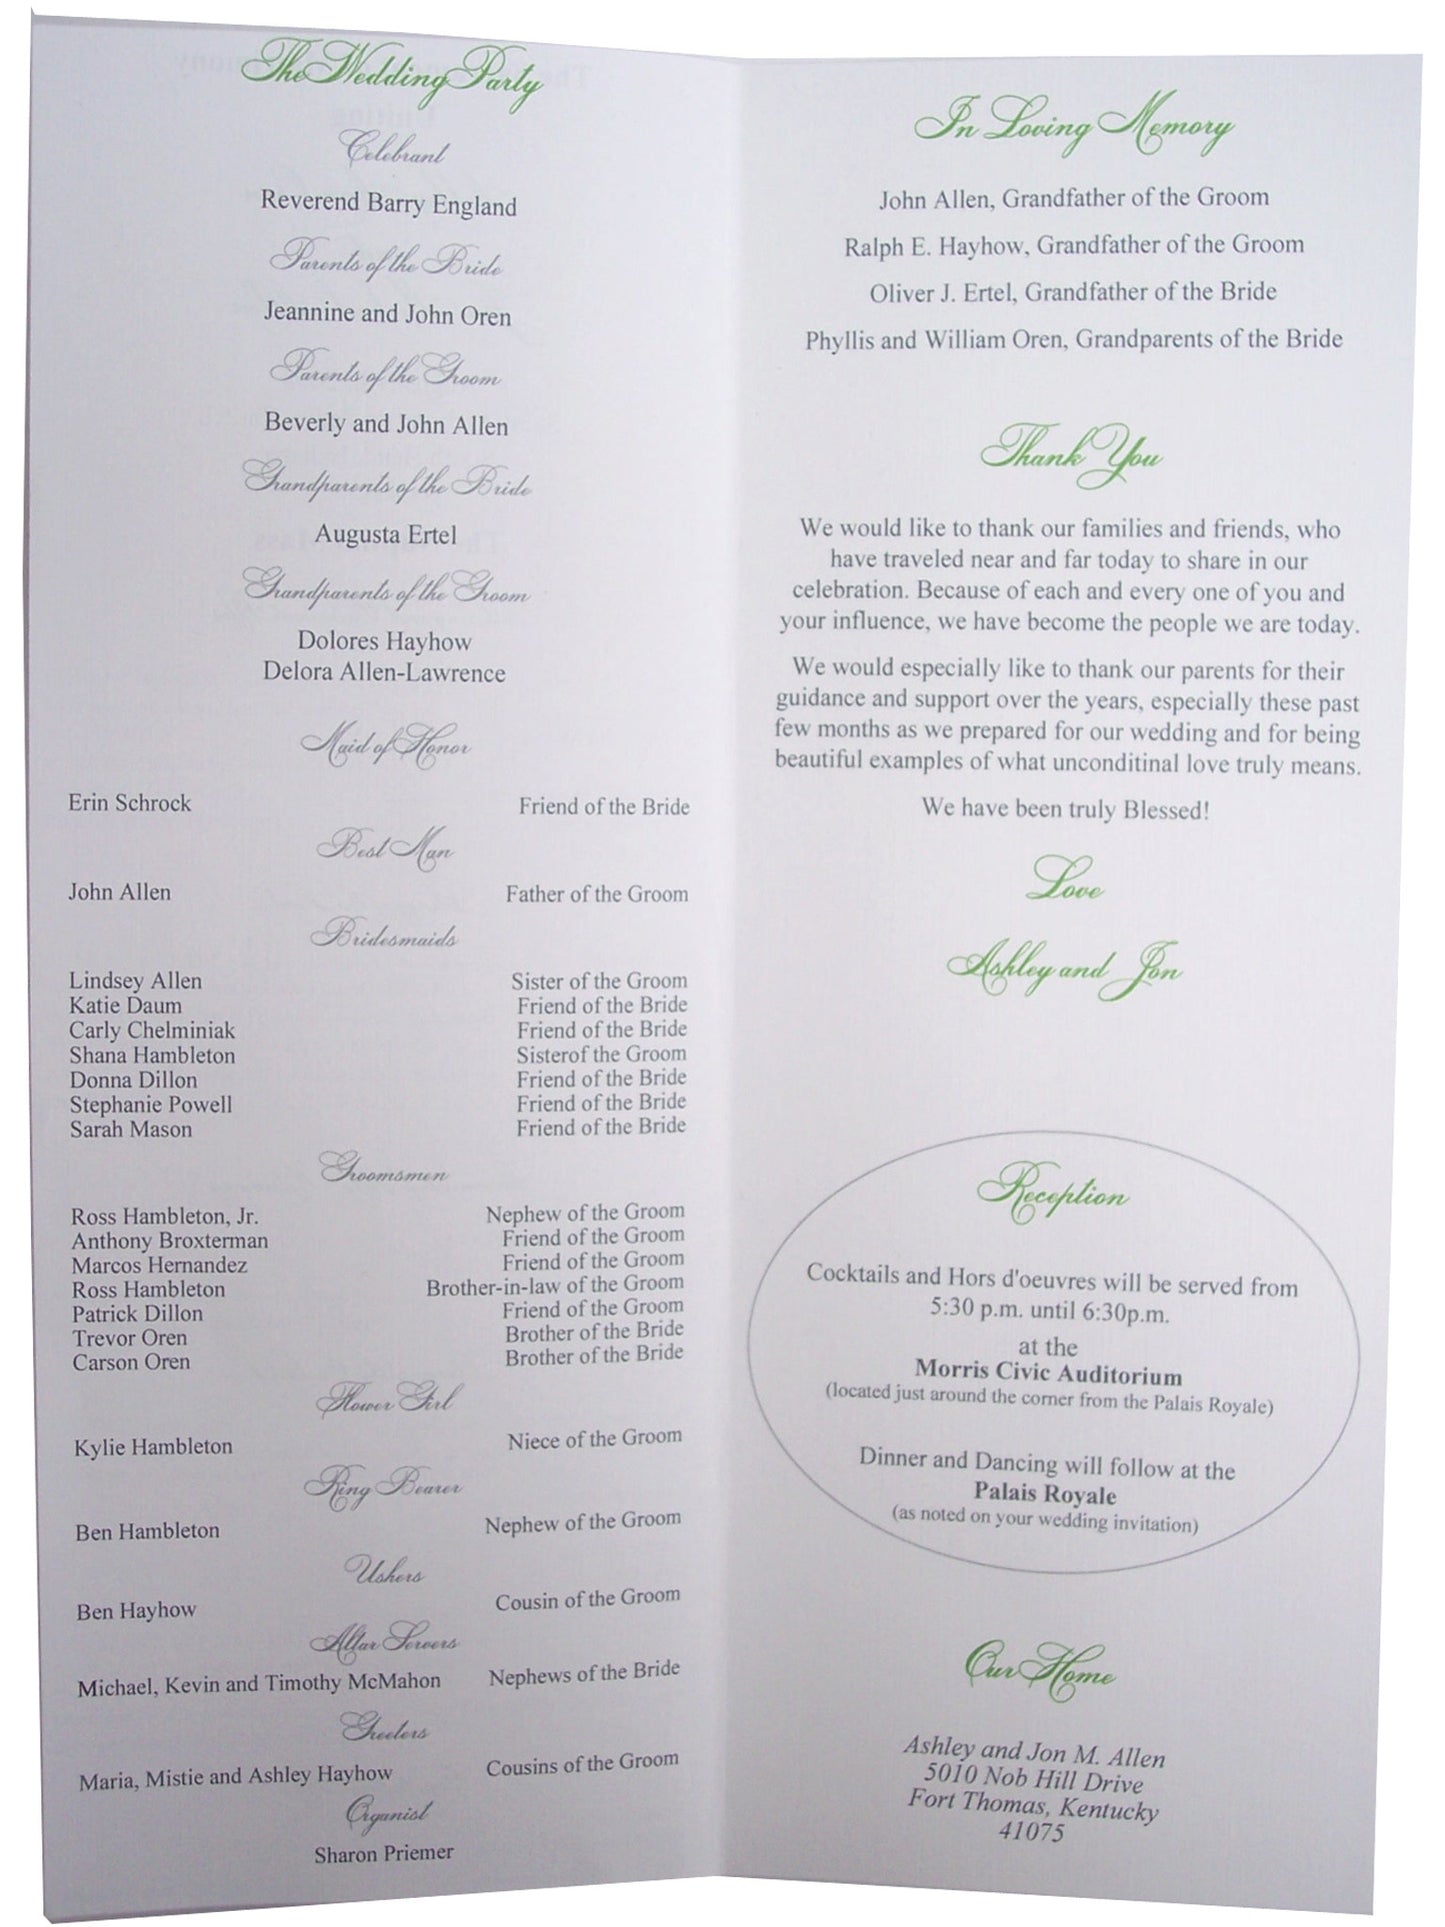 The Wedding Party
Celebrant
Reverend Barry England
Parents of the Bride
Jeannine and John Oren
Parents of the Groom
Beverly and John Allen
Grandparents of the Bride
Augusta Ertel
Grandparents of the Groom
Dolores Hayhow
Delora Allen-Lawrence
Maid of Honor
Erin Schrock Friend of the Bride
Best Man
John Allen Father of the Groom
Bridesmaids
Lindsey Allen Sister of the Groom
Katie Daum Friend of the Bride
Carly Chelminiak Friend of the Bride
Shana Hambleton Sisterof the Groom
Donna Dillon Friend of the Bride
Stephanie Powell Friend of the Bride
Sarah Mason Friend of the Bride
Groomsmen
Ross Hambleton, Jr. Nephew of the Groom
Anthony Broxterman Friend of the Groom
Marcos Hernandez Friend of the Groom
Ross Hambleton Brother-in-law of the Groom
Patrick Dillon Friend of the Groom
Trevor Oren Brother of the Bride
Carson Oren Brother of the Bride
Flower Girl
Kylie Hambleton Niece of the Groom
Ring Bearer
Ben Hambleton Nephew of the Groom
Ushers
Ben Hayhow Cousin of the Groom
Altar Servers
Michael, Kevin and Timothy McMahon Nephews of the Bride
Greeters
Maria, Mistie and Ashley Hayhow Cousins of the Groom
Organist
Sharon Priemer
In Loving Memory
John Allen, Grandfather of the Groom
Ralph E. Hayhow, Grandfather of the Groom
Oliver J. Ertel, Grandfather of the Bride
Phyllis and William Oren, Grandparents of the Bride
Thank You
We would like to thank our families and friends, who
have traveled near and far today to share in our
celebration. Because of each and every one of you and
your influence, we have become the people we are today.
We would especially like to thank our parents for their
guidance and support over the years, especially these past
few months as we prepared for our wedding and for being
beautiful examples of what unconditinal love truly means.
We have been truly Blessed!
Love
Ashley and Jon
Reception
Cocktails and Hors d'oeuvres will be served from
5:30 p.m. until 6:30p.m.
at the
Morris Civic Auditorium
(located just around the corner from the Palais Royale)
Dinner and Dancing will follow at the
Palais Royale
(as noted on your wedding invitation)
Our Home
Ashley and Jon M. Allen
5010 Nob Hill Drive
Fort Thomas, Kentucky
41075